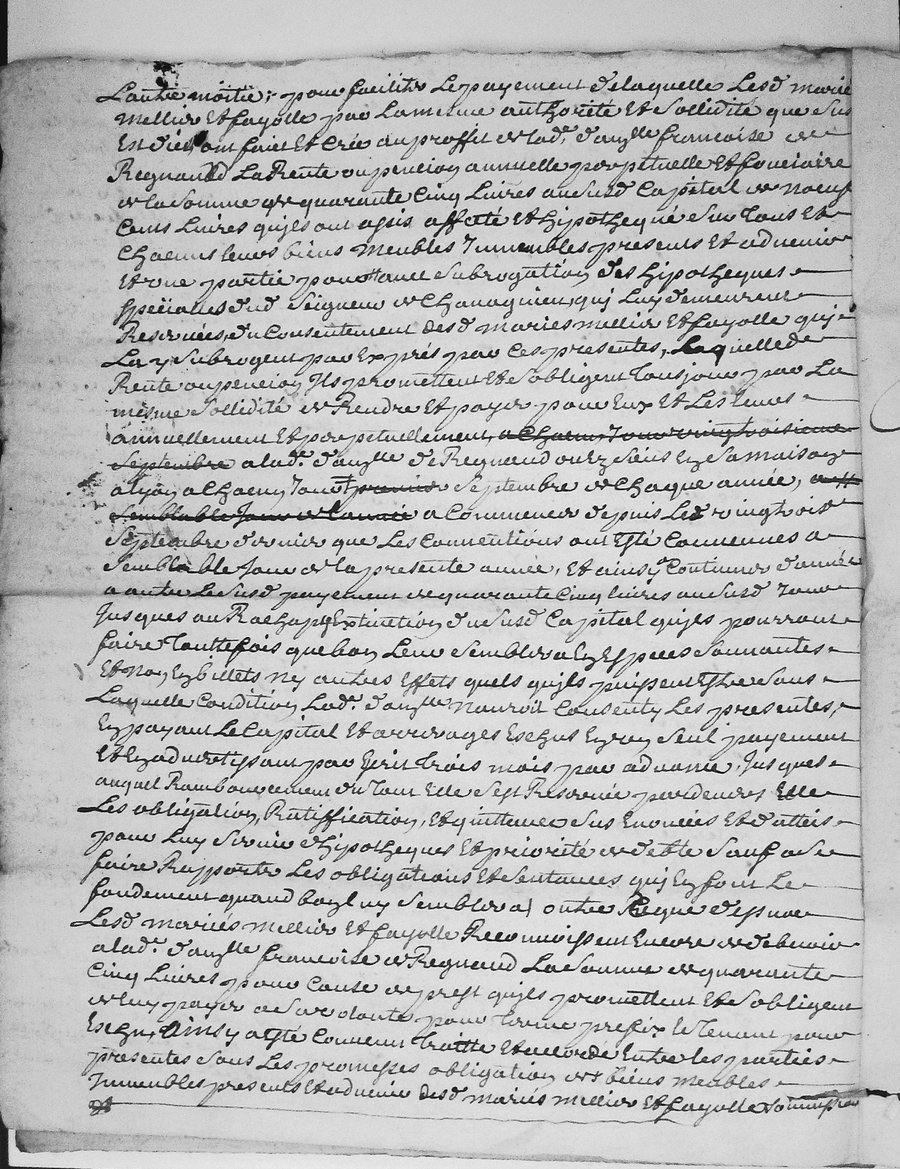 L'autre moitié; pour faciliter Le payement de laquelle Lesd mariés
mellier Et fayolle par La mesme authorité Et Sollidité que Sus
Est dict, ont fait Et Crée au proffit de lad.e d'auzlle francoise de
Regnauld La Rente ou pencion annuelle perpetuelle Et fonciaire
de la Somme de quarante Cinq Livres au Susd Capital de Neuf
Cens Livres quj̃ls ont assis affecté Et hipothequé Sur Tous Et
Chacuns leurs biens Meubles Immeubles presents Et advenir
Et une partie pour L'autre Subrogation des hipotheques
Speciales dud Seigneur de quj Luy demeurent
Reservées, du Consentement desd mariés mellier Et fayolle quj
Lay Subrogent par Exprés par Ces presentes, Laquelle de
Rente ou pencion Ils promettent Et S'obligent Tousjour par La
mesme Sollidité de Rendre Et payer pour Eux Et Les leurs
annuellement Et perpetuellement, a Chacun Jour vingt troisieme
Septembre a lad.e d'auzlle de Regnaud ou Ez Siens En Sa maison
a Lyon a Chacun Jour premier Septembre de Chaque année,
Semblable Jour de l'année a Commencer depuis Led vingt trois
Septembre dernier que Les Conventions ont Esté Convenues a
Semblable Jour de la presente année, Et ainsy Continuer d'année
a autre Le Susd payement de quarante Cinq livres au Susd Jour
Jusques au Rachapt Extinction du Susd Capital quj̃ls pourront
faire Touttefois que bon Leur Semblera En Especes Sonnantes
Et Non En billets Ny autres Effets quels quj̃ls puissent Estre Sans
Laquelle Condition Lad.e d'auzlle N'auroit Consenty Les presentes,
En payant Le Capital Et arrerages Escheus En un Seul payement
Et En advertissant par Ecrit Trois mois par advance, Jusques
auquel Rambourcement du Tout Elle S'est Reservée pardevers Elle
Les obligation, Ratiffication, Et quittance Sus Enoncées Et dattées
pour Luy Servir d'hipotheques Et priorité de debte Sauf a Se
faire Rapporter Les obligations Et Sentances quj En font Le
fondement quand bon luy Semblera, outre Ce que dessus
Lesd mariés mellier Et fayolle Reconnoissent Encore de debvoir
a lad.e d'auzlle francoise de Regnaud La Somme de quarante
Cinq Livres pour Cause de prest quj̃ls promettent Et S'obligent
de luy payer a Sa volonté pour Terme prefix Et Tenant pour
Escheu, Ainsy a Esté Convenu Traitté Et accordé Entre les parties
presentes Sous Les promesses obligation de biens meubles
Immeubles presents Et advenir desd mariés mellier Et fayolle Soumission